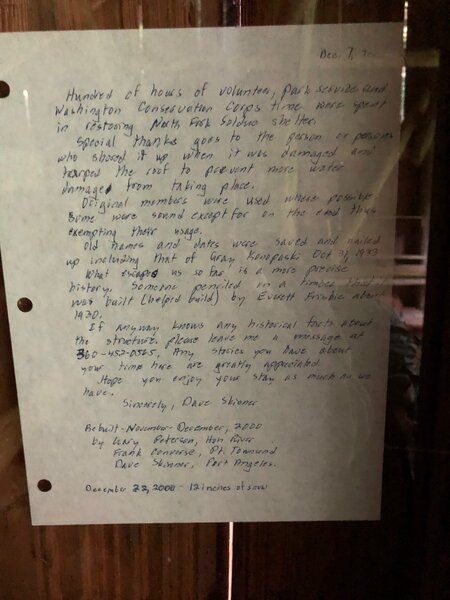 Dec. 7,
Hundred of hours of volunteer, park service and
Washington Conservation Corps time were spent
in restoring North Fork Solduc shelter.
Special thanks goes to the person or persons
who shored it up when it was damaged and
tarped the roof to prevent more water
damaged from taking place.
Original members were used where possible
Some were sound except for on the end thus
exempting their usage.
Old names and dates were saved and nailed
up including that of Gray Konopaski Oct 31, 1933
What escapes us so far is a more precise
history. Someone penciled on a timber that it
was built (helped build) by Everett Frisbie about
1930.
If anyway knows any historical facts about
the structure, please leave me a message at
360-452-0365. Any stories you have about
your time here are greatly appreciated.
Hope you enjoy your stay as much as we
have.
Sincerely, Dave Skinner
Rebuilt-November-December, 2000
by Gary Peterson, Hoh River
Frank Converse, Pt. Townsend
Dave Skinner, Port Angeles.
December 22, 2000 - 12 inches of snow